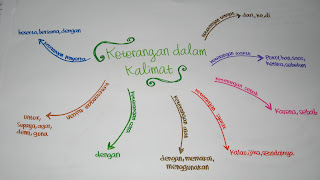 Keterangan dalam
Kalimat
keterangan tempat
dari, ke, di
keterangan waktu
ketika, sebelum
keterangan sebab
Karena, sebab
keterangan syarat
Kalau, jika, seandainya
keterangan alat
dengan, memakai,
menggunakan
keterangan cara
dengan
keterangan tujuan
untuk,
supaya, agar,
demi, guna
keterangan penyerta
beserta, bersama, dengan